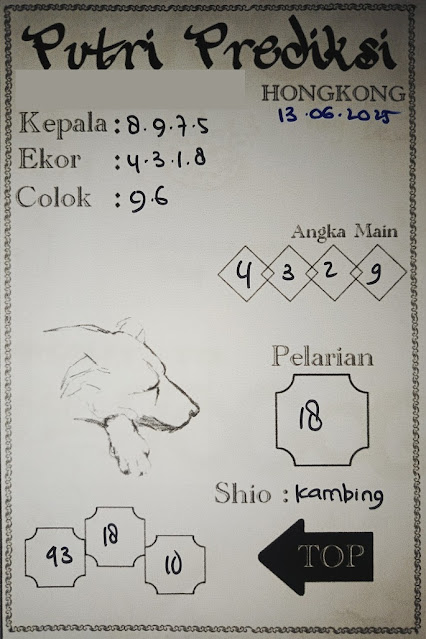 Putri Prediksi
HONGKONG
13.06.2025
Kepala : 8.9.7.5
Ekor : 4.3.1.8
Colok : 9.6
Angka Main
4 3 2 9
Pelarian
18
Shio : Kambing
93 18 10
TOP